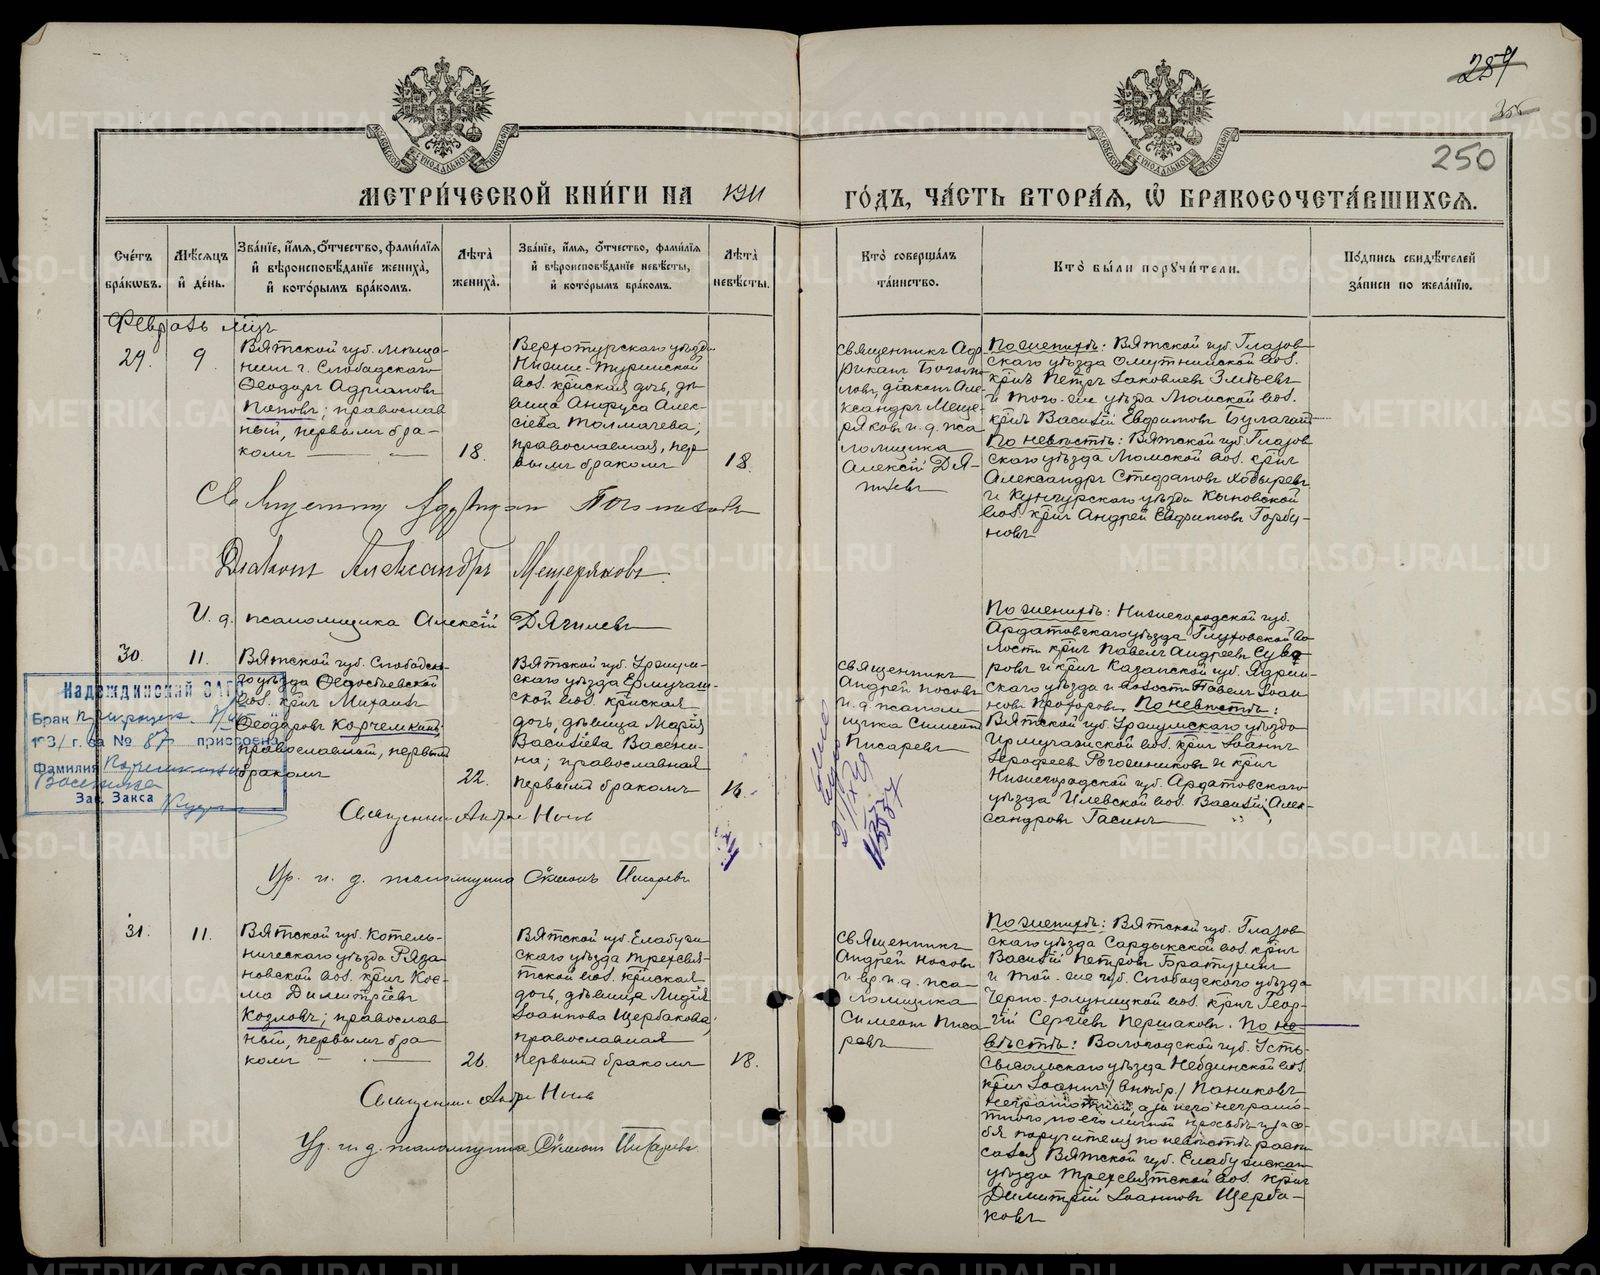 289
250
МЕТРИ́ЧЕСКОЙ КНИ́ГИ НА 1911 ГО́ДЪ, ЧА́СТЬ ВТОРА́Я, Ѽ БРАКОСОЧЕТА́ВШИХСЯ.
Сче́тъ бра́кѡвъ.
Мѣ́сяцъ и҆ де́нь.
Зва́нїе, и҆́мя, ѻ҆́тчество, фами́лїя и҆ вѣроисповѣ́данїе жениха̀, и҆ кото́рымъ бра́комъ.
Лѣ́та жениха̀.
Зва́нїе, и҆́мя, ѻ҆́тчество, фами́лїя и҆ вѣроисповѣ́данїе невѣ́сты, и҆ кото́рымъ бра́комъ.
Лѣ́та невѣ́сты.
Кто̀ соверша́лъ та́инство.
Кто̀ бы́ли порꙋчи́тели.
По́дпись свидѣ́телей за́писи по жела́нїю.
Февраль мцъ
29.
9.
Вятской губ. мѣща-
нинъ г. Слободскаго
Ѳеодоръ Адріановъ
Поповъ; православ
ный, первымъ бра-
комъ
18.
Верхотурскаго уѣзда
Нижне-Туринской
вол. крнская дочь, дѣ-
вица Анфуса Алек-
сѣева Толмачева;
православная, пер
вымъ бракомъ
18.
Священникъ Адр
ріанъ Богомо
ловъ, діаконъ Але-
ксандръ Меще-
ряковъ и. д. пса
ломщика
Алексій Дя-
гилевъ
По женихѣ: Вятской губ. Глазов
скаго уѣзда Омутнинской вол.
крнъ Петръ Іаковлевъ Змѣевъ
и того-же уѣзда Люмской вол.
крнъ Василій Евфимовъ Булагай
По невѣстѣ: Вятской губ. Глазов
скаго уѣзда Люмской вол. крнъ
Александръ Стефановъ Хобыревъ
и Кунгурскаго уѣзда Кыновской
вол. крнъ Андрей Евфимовъ Горбу-
новъ
Священникъ Адріанъ Богомоловъ
Діаконъ Александръ Мещеряковъ
И. д. псаломщика Алексій Дягилевъ
30.
11.
Вятской губ. Слободск
го уѣзда Ѳедосѣевской
вол. крнъ Михаилъ
Ѳеодоровъ Корчемкинъ
православный, первымъ
бракомъ
22.
Вятской губ. Уржум-
скаго уѣзда Ермучаш-
ской вол. крнская
дочь, дѣвица Марія
Василіева Васени-
на; православная
первымъ бракомъ
16.
Священникъ
Андрей Носовъ
и. д. псалом
щика Симеонъ
Писаревъ
По женихѣ: Нижегородской губ.
Ардатовскаго уѣзда Глуховской во-
лости крнъ Павелъ Андреевъ Суво
ровъ и крнъ Казанской губ. Ядрин
скаго уѣзда и волости Павелъ Іоан
новъ Прохоровъ. По невѣстѣ:
Вятской губ. Уржумскаго уѣзда
Ирмучашской вол. крнъ Іоаннъ
Іерофеевъ Рогожниковъ и крнъ
Нижегородской губ. Ардатовскаго
уѣзда Илевской вол. Василій Алек-
сандровъ Гасинъ
Надеждинский ЗАГС
Брак
1931 г. за № 87 присвоена
Фамилия
Зав. Загса
13337
Священникъ Андрей Носовъ
Ур. и. д. псаломщика Симеонъ Писаревъ
31.
11.
Вятской губ. Котель-
ническаго уѣзда Ряза
новской вол. крнъ Кос-
ма Димитріевъ
Козловъ; православ
ный, первымъ бра-
комъ
26.
Вятской губ. Елабуж
скаго уѣзда Трехсвя-
тской вол. крнская
дочь, дѣвица Лидія
Іоаннова Щербакова;
православная
первымъ бракомъ
18.
Священникъ
Андрей Носовъ
и вр. и. д. пса-
ломщика
Симеонъ Писа
ревъ
По женихѣ: Вятской губ. Глазов
скаго уѣзда Сардыкской вол. крнъ
Василій Петровъ Братухинъ
и той-же губ. Слободскаго уѣзда
Черно-холуницкой вол. крнъ Геор-
гій Сергіевъ Першаковъ. По не-
вѣстѣ: Вологодской губ. Усть-
Сысольскаго уѣзда Небдинской вол.
крнъ Іоаннъ Паниковъ
неграмотный, а за него неграмо-
тнаго по его личной просьбѣ и за се-
бя поручителя по невѣстѣ распи
сался Вятской губ. Елабужскаго
уѣзда Трехсвятской вол. крнъ
Димитрій Іоанновъ Щерба-
ковъ
Священникъ Андрей Носовъ
Ур. и. д. псаломщика Симеонъ Писаревъ
METRIKI.GASO-URAL.RU